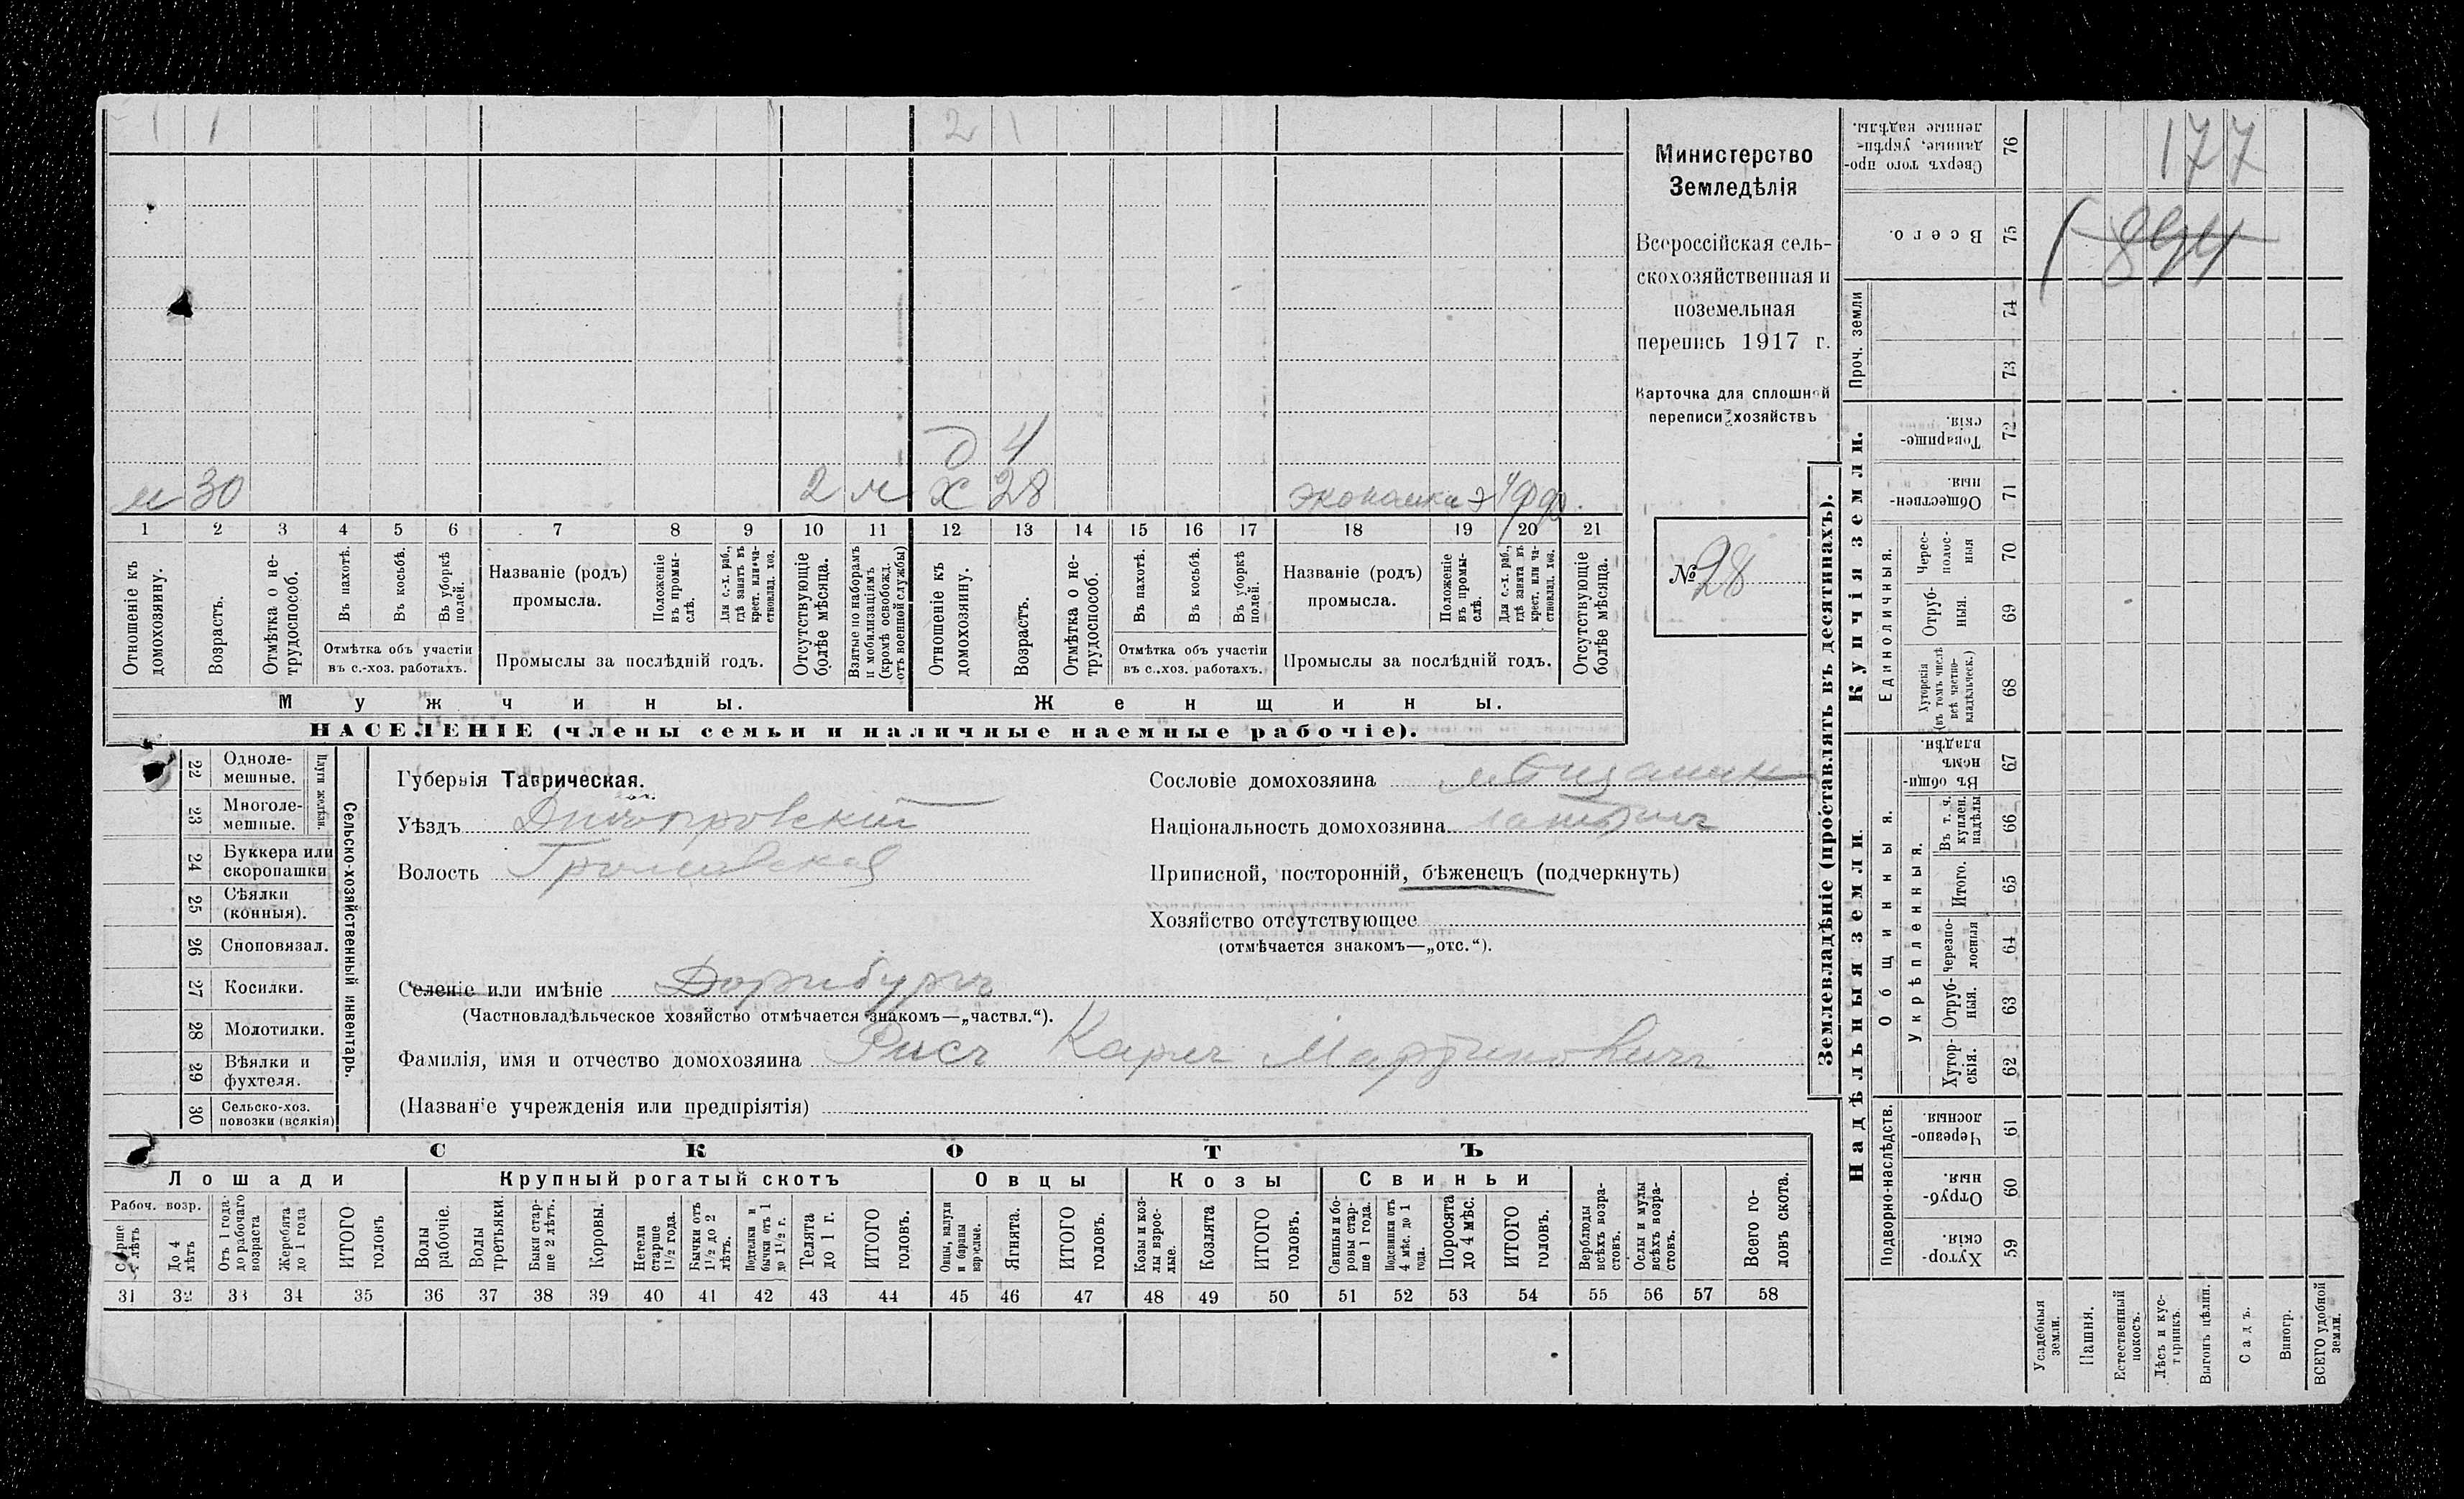 1 1 2 1
д 4
м 30 2 м х 28 экономка э
1 2 3 4 5 6 7 8 9 10 11 12 13 14 15 16 17 18 19 20 21
Отношеніе къ домохозяину.
Возрастъ.
Отмѣтка о не-трудоспособ.
Въ пахотѣ.
Въ косьбѣ.
Въ уборкѣ полей.
Отмѣтка объ участіи
въ с.-хоз. работахъ.
Названіе (родъ)
промысла.
Положеніе въ промы-слѣ.
Для с.-х. раб., гдѣ занятъ въ крест. или ча-стновлад. хоз.
Промыслы за послѣдній годъ.
Отсутствующіе болѣе мѣсяца.
Взятые по наборамъ и мобилизаціямъ (кромѣ освобожд. отъ военной службы)
Отношеніе къ домохозяину.
Возрастъ.
Отмѣтка о не-трудоспособ.
Въ пахотѣ.
Въ косьбѣ.
Въ уборкѣ полей.
Отмѣтка объ участіи
въ с.-хоз. работахъ.
Названіе (родъ)
промысла.
Положеніе въ промы-слѣ.
Для с.-х. раб., гдѣ занята въ крест. или ча-стновлад. хоз.
Промыслы за послѣдній годъ.
Отсутствующіе болѣе мѣсяца.
Мужчины.
Женщины.
НАСЕЛЕНІЕ (члены семьи и наличные наемные рабочіе).
Министерство
Земледѣлія
Всероссійская сель-
скохозяйственная и
поземельная
перепись 1917 г.
Карточка для сплошной
переписи хозяйствъ
№ 28
22 Одноле-мешные.
23 Многоле-мешные.
Плуги желѣзн.
24 Буккера или скоропашки
25 Сѣялки (конныя).
26 Сноповязал.
27 Косилки.
28 Молотилки.
29 Вѣялки и фухтеля.
30 Сельско-хоз. повозки (всякія)
Сельско-хозяйственный инвентарь.
Губернія Таврическая.
Уѣздъ Днѣпровскій
Волость Громовская
Сословіе домохозяина мѣщанин
Національность домохозяина латыш
Приписной, посторонній, бѣженецъ (подчеркнуть)
Хозяйство отсутствующее
(отмѣчается знакомъ—„отс.“).
Селеніе или имѣніе Дорнбургъ
(Частновладѣльческое хозяйство отмѣчается знакомъ—„частвл.“).
Фамилія, имя и отчество домохозяина Рисъ Карлъ Мартиновичъ
(Названіе учрежденія или предпріятія)
СКОТЪ
Лошади
Крупный рогатый скотъ
Овцы
Козы
Свиньи
Рабоч. возр.
Старше 4 лѣтъ
До 4 лѣтъ
Отъ 1 года до рабочаго возраста
Жеребята до 1 года
ИТОГО головъ
Волы рабочіе.
Волы третьяки.
Быки стар-ше 2 лѣтъ.
Коровы.
Нетели старше 1½ года.
Бычки отъ 1½ до 2 лѣтъ.
Подтелки и бычки отъ 1 до 1½ г.
Телята до 1 г.
ИТОГО головъ.
Овцы, валухи и бараны взрослые.
Ягнята.
ИТОГО головъ.
Козы и коз-лы взрос-лые.
Козлята
ИТОГО головъ.
Свиньи и бо-ровы стар-ше 1 года.
Подсвинки отъ 4 мѣс. до 1 года.
Поросята до 4 мѣс.
ИТОГО головъ.
Верблюды всѣхъ возра-стовъ.
Ослы и мулы всѣхъ возра-стовъ.
Всего го-ловъ скота.
31 32 33 34 35 36 37 38 39 40 41 42 43 44 45 46 47 48 49 50 51 52 53 54 55 56 57 58
Землевладѣніе (проставлять въ десятинахъ).
Надѣльныя земли.
Купчія земли.
Проч. земли
Подворно-наслѣдств.
Общинныя.
Укрѣпленныя.
Единоличныя.
Сверхъ того про-данные, укрѣп-ленные надѣлы. 76 177
Всего. 75
74
73
Товарище-скія. 72
Обществен-ныя. 71
Черес-полос-ныя 70
Отруб-ныя. 69
Хуторскія (въ томъ числѣ всѣ частно-владѣльческ.) 68
Въ общин-номъ владѣн. 67
Въ т. ч. куплен. надѣлы 66
Итого. 65
Черезпо-лосныя 64
Отруб-ныя. 63
Хутор-скія. 62
Черезпо-лосныя 61
Отруб-ныя. 60
Хутор-скія. 59
Усадебныя земли.
Пашня.
Естественный покосъ.
Лѣсъ и кус-тарникъ.
Выгонъ цѣлин.
Садъ.
Виногр.
ВСЕГО удобной земли.